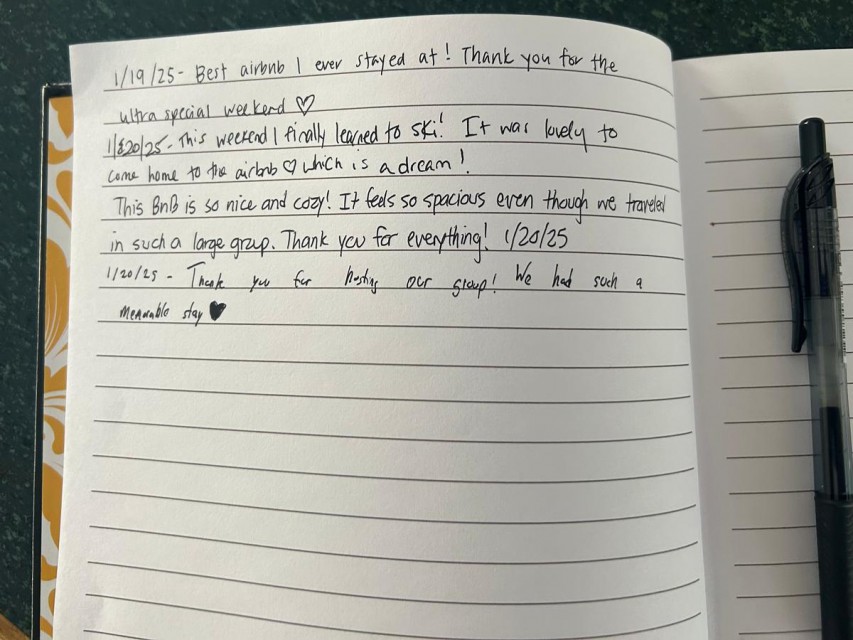 1/19/25- Best airbnb I ever stayed at! Thank you for the
ultra special weekend ♡
1/20/25- This weekend I finally learned to ski! It was lovely to
come home to the airbnb ♡ which is a dream!
This BnB is so nice and cozy! It feels so spacious even though we traveled
in such a large group. Thank you for everything! 1/20/25
1/20/25 - Thank you for hosting our group! We had such a
memorable stay ♥